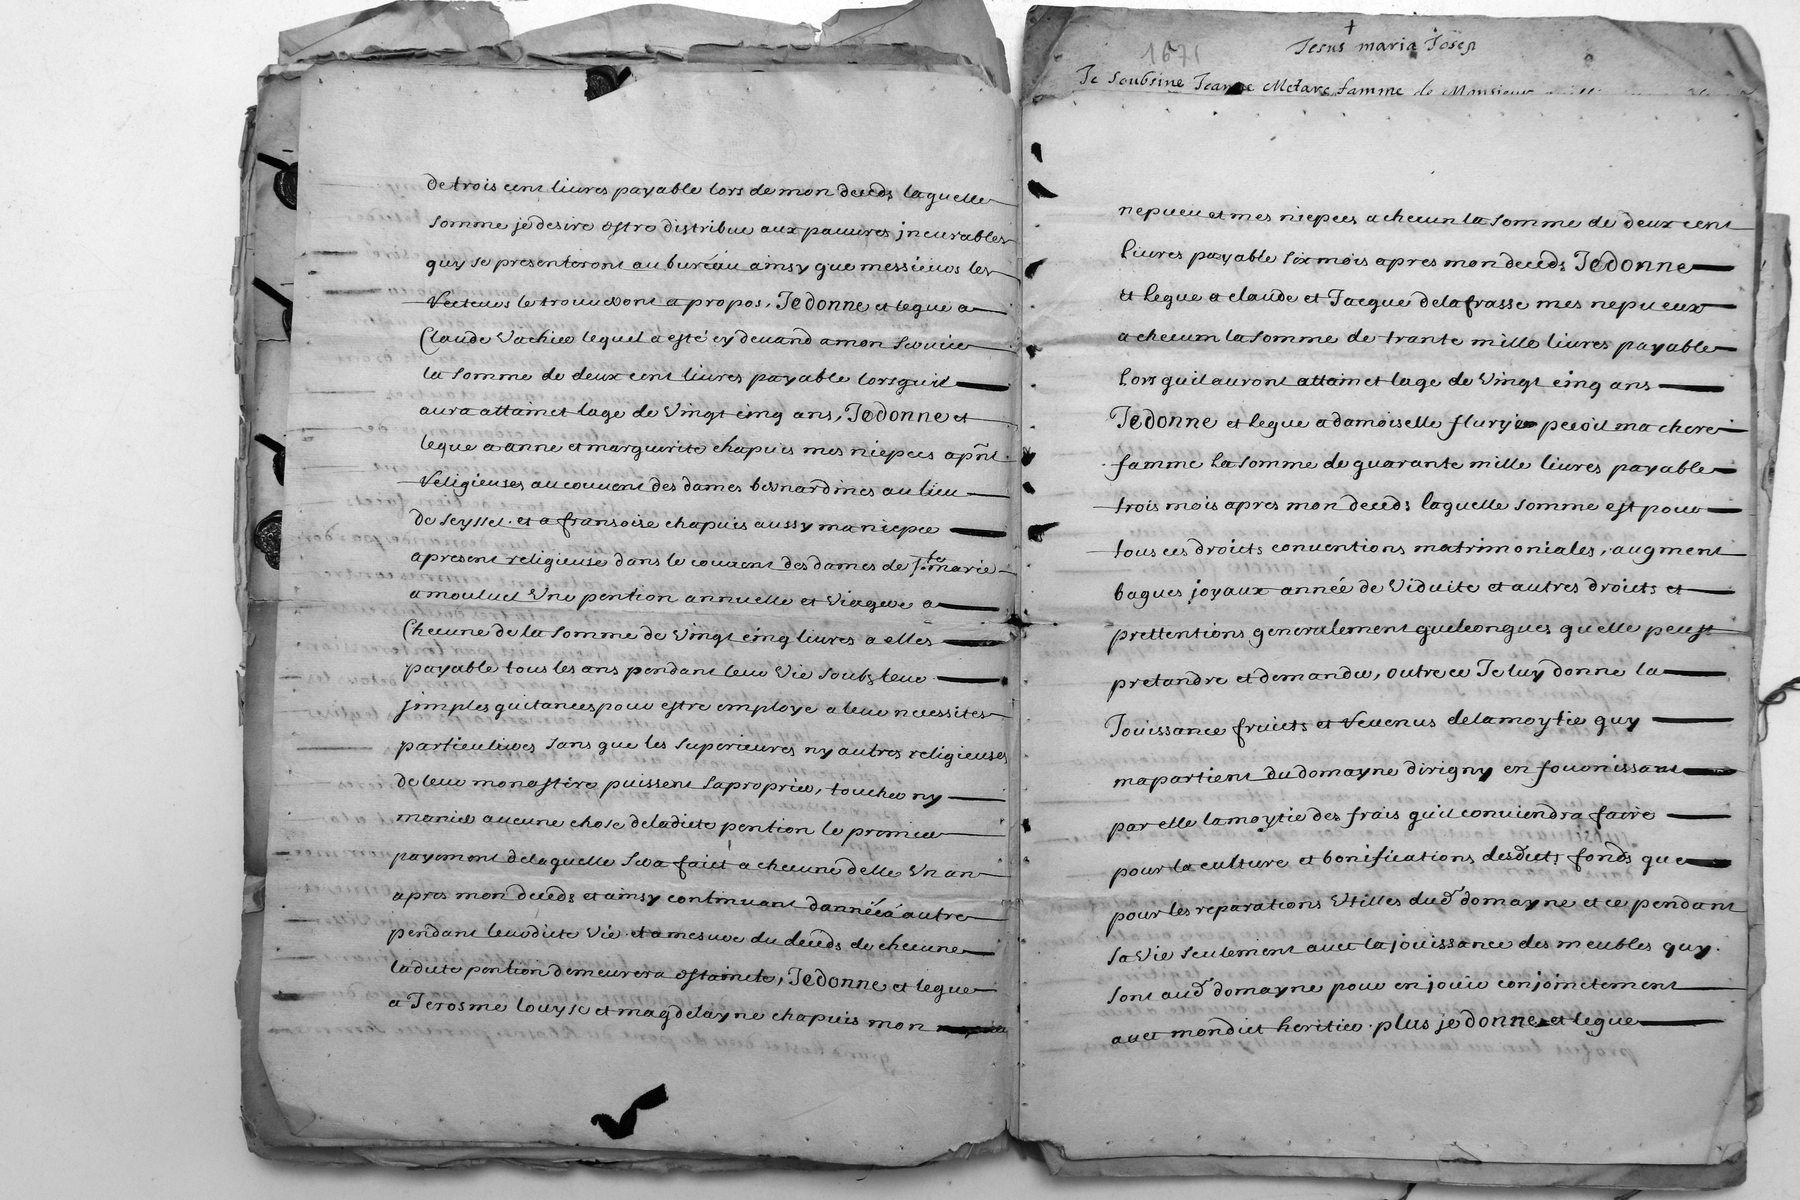 de trois cent livres payable lors de mon deceds laquelle
somme je desire estre distribue aux pauvres jncurables
quy se presenteront au bureau ainsy que messieurs les
recteurs le trouveront a propos, Je donne et legue a
Claude Vachier lequel a esté cy devand a mon service
la somme de deux cent livres payable lorsquil
aura attainct lage de vingt cinq ans, Je donne et
legue a anne et marguerite chapuis mes niepces apñt
religieuses au couvent des dames bernardines au lieu
de seyssel. et a fransoise chapuis aussy ma niepce
apresent religieuse dans le couvent des dames de Ste marie
a mouluel une pention annuelle et viagere a
Checune de la somme de vingt cinq livres a elles
payable tous les ans pendant leur vie soubz leur
simples quitances pour estre employe a leur necessites
particulieres sans que les superieures ny autres religieuses
de leur monastere puissent saproprier, toucher ny
manier aucune chose de ladicte pention le premier
payement delaquelle sera faict a checune delle un an
apres mon deceds et ainsy continuant dannéé a autre
pendant leurdicte vie et a mesure du deceds de checune
ladicte pention demeurera estaincte, Je donne et legue
a Jerosme louyse et magdelayne chapuis mon
1671
Jesus maria Josep
Je soubsine Jeanne Metare famme de Monsieur
nepveu et mes niepces a checun la somme de deux cent
livres payable six mois apres mon deceds Je donne
et legue a claude et Jacque delafrasse mes nepveux
a checun la somme de trante mille livres payable
lors quil auront attainct lage de vingt cinq ans
Je donne et legue a damoiselle flurye ma chere
famme la somme de quarante mille livres payable
trois mois apres mon deceds laquelle somme est pour
tous ces droicts conventions matrimoniales, augment
bagues joyaux année de viduite et autres droicts et
prettentions generalement quelconques quelle peust
pretandre et demander, outre ce Je luy donne la
Jouissance fruicts et revenus de la moytie quy
mapartient du domayne dirigny en fournissant
par elle la moytie des frais quil conviendra faire
pour la culture et bonifications desdicts fonds que
pour les reparations utilles dud domayne et ce pendant
sa vie seulement avec la jouissance des meubles quy
sont aud domayne pour en jouir conjoinctement
avec mondict heritier. plus je donne et legue